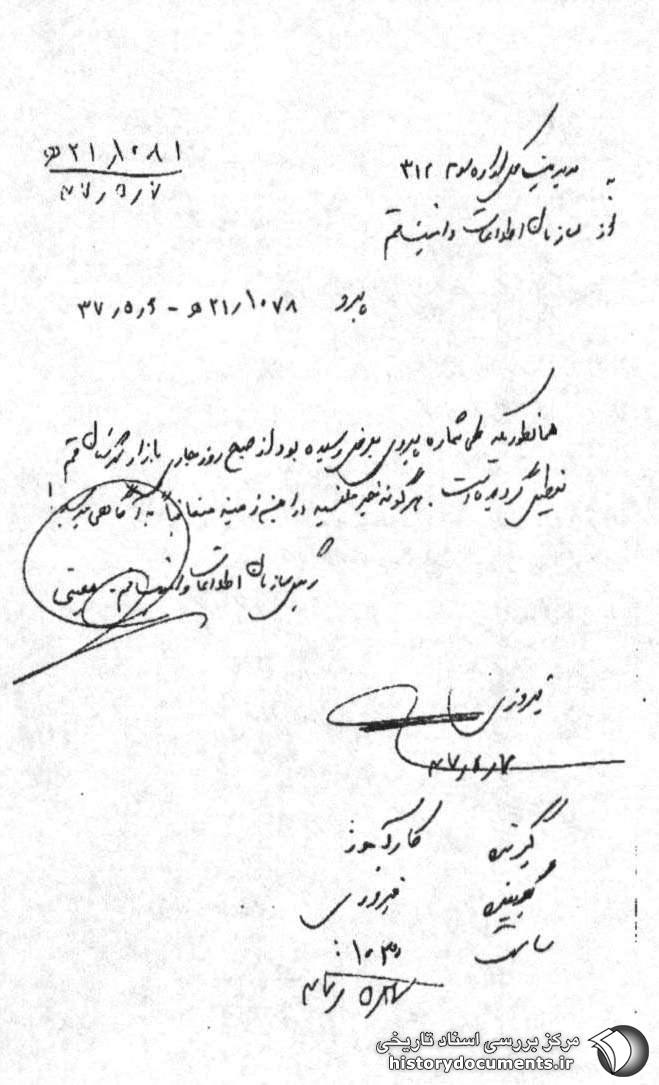 ۲۱/۱۰۸۱ ه
۳۷/۵/۷
به مدیریت کل اداره سوم ۳۱۲
از سازمان اطلاعات و امنیت قم
پیرو ۲۱/۱۰۷۸ ه - ۳۷/۵/۶
همانطوریکه طی شماره پیروی بعرض رسیده بود از صبح روز جاری بازار شهرستان قم
تعطیل گردیده است. هرگونه خبر واصله در این زمینه متعاقباً به آگاهی میرسد
رئیس سازمان اطلاعات و امنیت قم
فیروزی
گیرنده کارآموز
گوینده فیروزی
ساعت ۱۰۳۰
مرکز بررسی اسناد تاریخی
historydocuments.ir